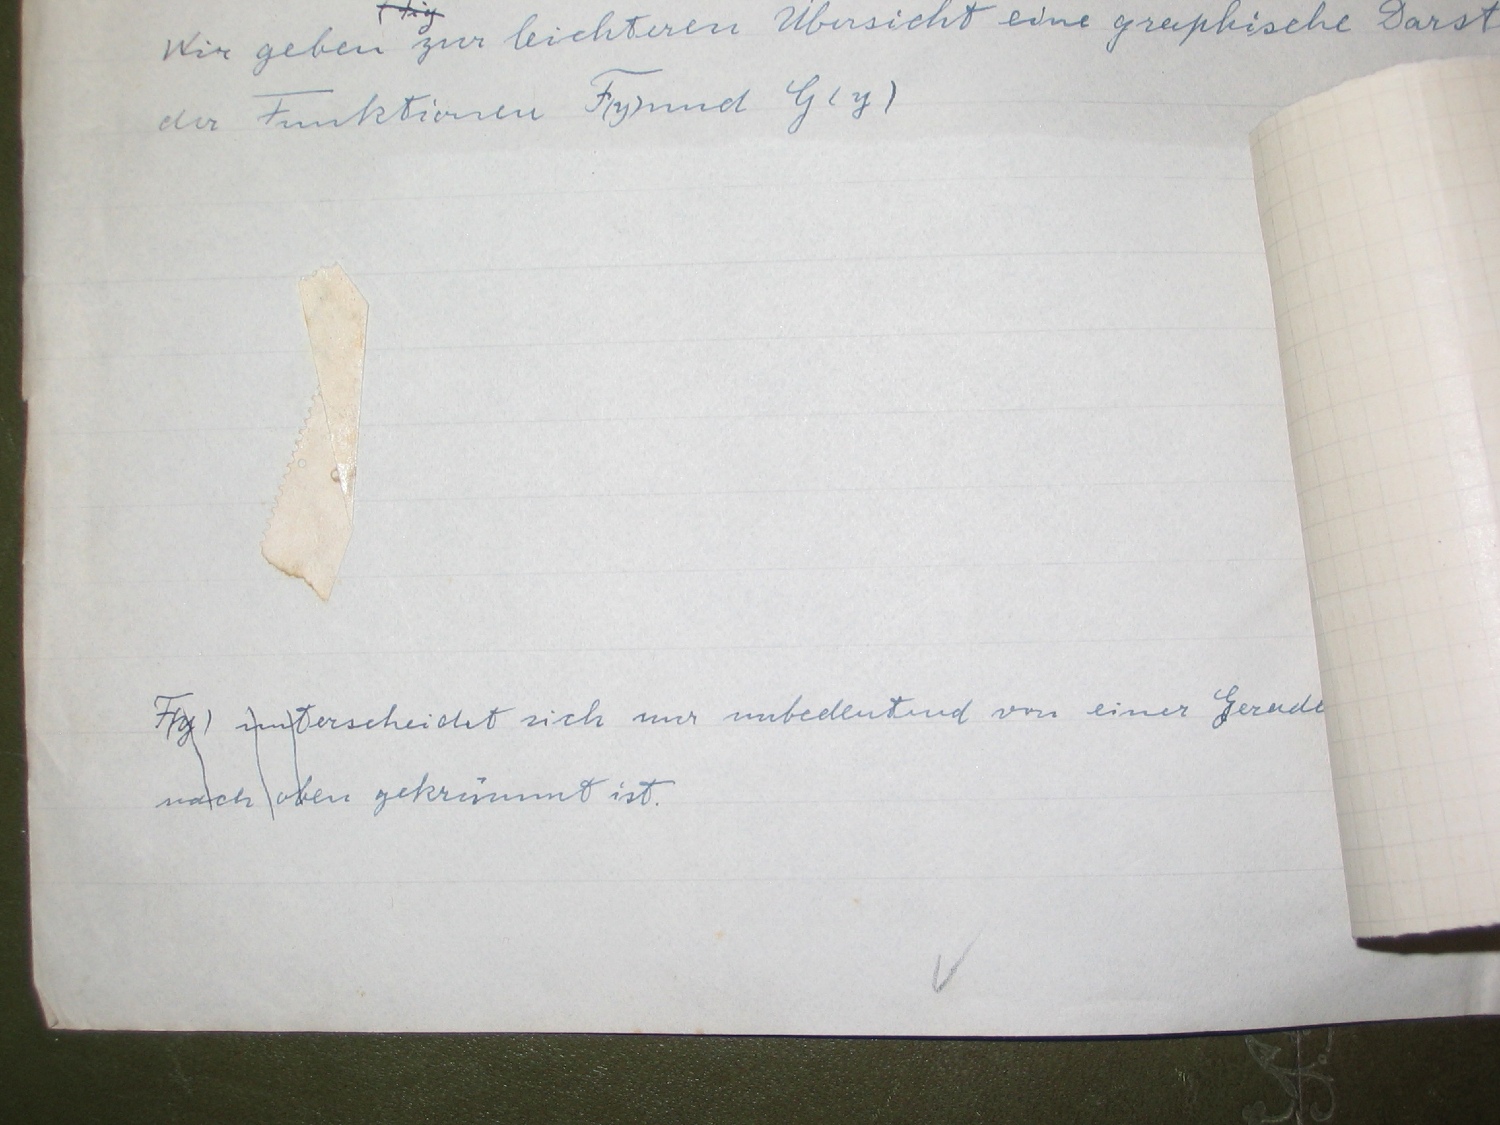 Wir geben zur leichteren Übersicht eine graphische Darst
der Funktionen F(y) und G(y)
F(y) unterscheidet sich nur unbedeutend von einer Gerade
nach oben gekrümmt ist.